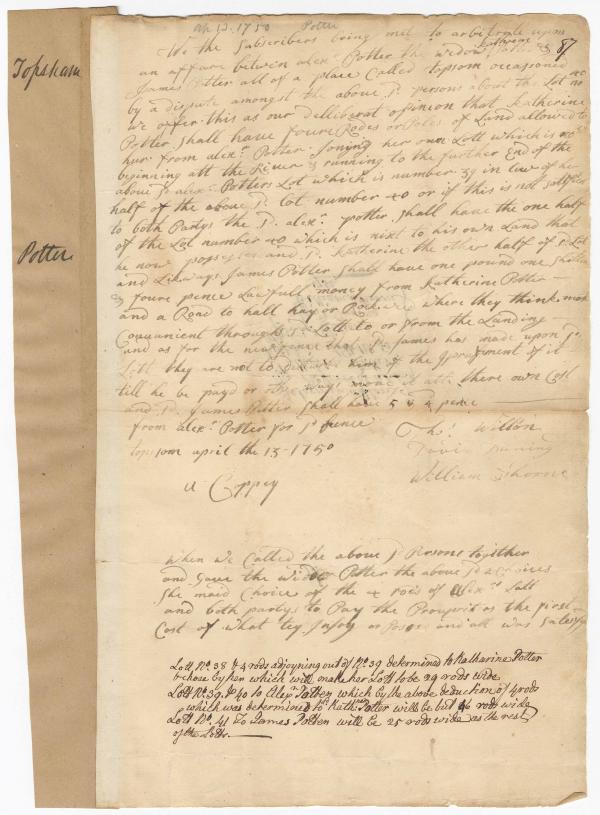 Topsham
Potter
Ap 13. 1750 Potter
87
We the Subscribers being met to arbitrate upon
an affare betwin alexr. Potter the widow Katherine Potter &
James Potter all of a place Called topsom occasioned
by a dispute amongst the above sd. persons about the Lot
we offer this as our delliberat opinion that Katherine
Potter Shall have foure Rodes or Poles of Land allowed to
hur from alexr. Potter Joning her own Lott which is
beginning att the River & running to the further End of the
above sd. alexr. Potters Lot which is number 39 in law of her
half of the above sd. lot number 40 or if this is not
to both Partys the sd. alexr. potter shall have the one half
of the Lot number 40 which is nixt to his own Land that
he now and sd. Katherine the other half of sd. Lot
and Likways James Potter Shall have one pound one
& foure pence Lawfull money from Katherine Potter
and a Road to hall hay or where they think
Convanient through sd. Lott to or from the Landing
and as for the new fence that sd. James has made upon sd.
Lott they are not to him of the of it
till he be payd or ways att there own Cost
and sd. James Potter Shall have 5 & 4 pence
from alexr. Potter for sd. fence
topsom april the 13 - 1750
Wilson
William Thorne
a Coppey
when we Called the above sd. Persons together
and Gave the widdo Potter the above sd. 2 Choices
She maid Choice of the 4 rods of Alexrs. Lott
and both partys to Pay the as the first
Cost of what tey or and all was
Lott No. 38 & 4 rods adjoyning out of No. 39 determined to Katharine Potter
& chose by her which will make her Lott to be 29 rods wide
Lott No. 39 & 40 to Alexr. Potter which by the above deduction of 4 rods
which was determined to Kathe. Potter will be but 46 rods wide
Lott No. 41 to James Potter will be 25 rods wide as the rest
of the Lotts.